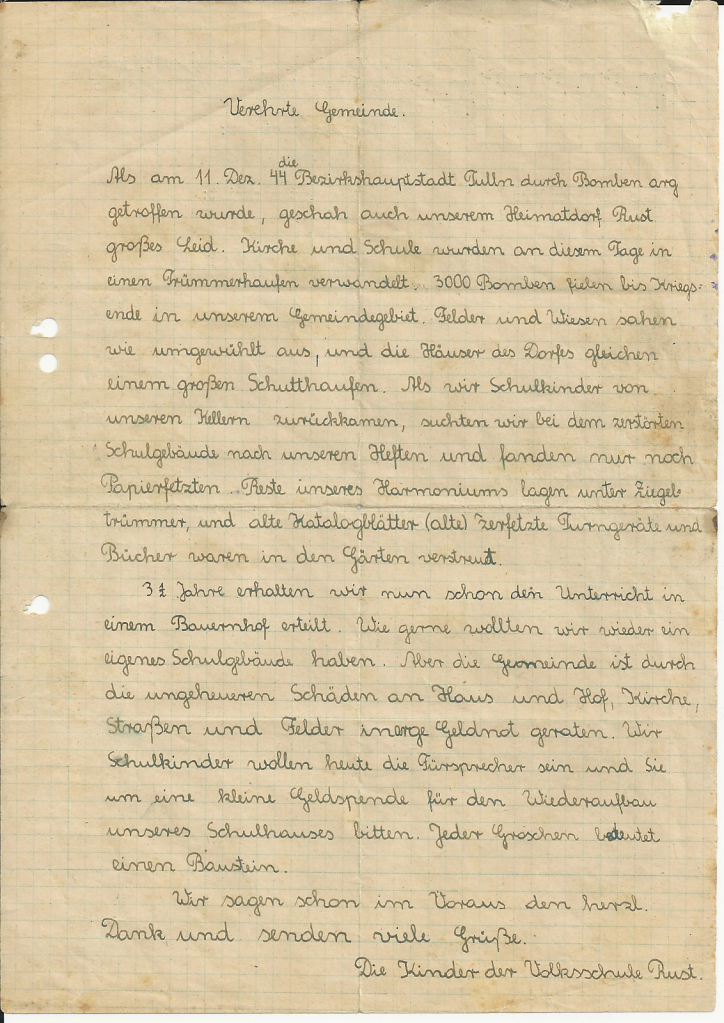 Verehrte Gemeinde.
Als am 11. Dez. 44 die Bezirkshauptstadt Tulln durch Bomben arg
getroffen wurde, geschah auch unserem Heimatdorf Rust
großes Leid. Kirche und Schule wurden an diesem Tage in
einen Trümmerhaufen verwandelt. 3000 Bomben fielen bis Kriegs=
ende in unserem Gemeindegebiet. Felder und Wiesen sahen
wie umgewühlt aus, und die Häuser des Dorfes gleichen
einem großen Schutthaufen. Als wir Schulkinder von
unseren Kellern zurückkamen, suchten wir bei dem zerstörten
Schulgebäude nach unseren Heften und fanden nur noch
Papierfetzten. Reste unseres Harmoniums lagen unter Ziegel=
trümmer, und alte Katalogblätter (alte) zerfetzte Turngeräte und
Bücher waren in den Gärten verstreut.
3½ Jahre erhalten wir nun schon den Unterricht in
einem Bauernhof erteilt. Wie gerne wollten wir wieder ein
eigenes Schulgebäude haben. Aber die Gemeinde ist durch
die ungeheueren Schäden an Haus und Hof, Kirche,
Straßen und Felder in arge Geldnot geraten. Wir
Schulkinder wollen heute die Fürsprecher sein und Sie
um eine kleine Geldspende für den Wiederaufbau
unseres Schulhauses bitten. Jeder Groschen bedeutet
einen Baustein.
Wir sagen schon im Voraus den herzl.
Dank und senden viele Grüße.
Die Kinder der Volksschule Rust.